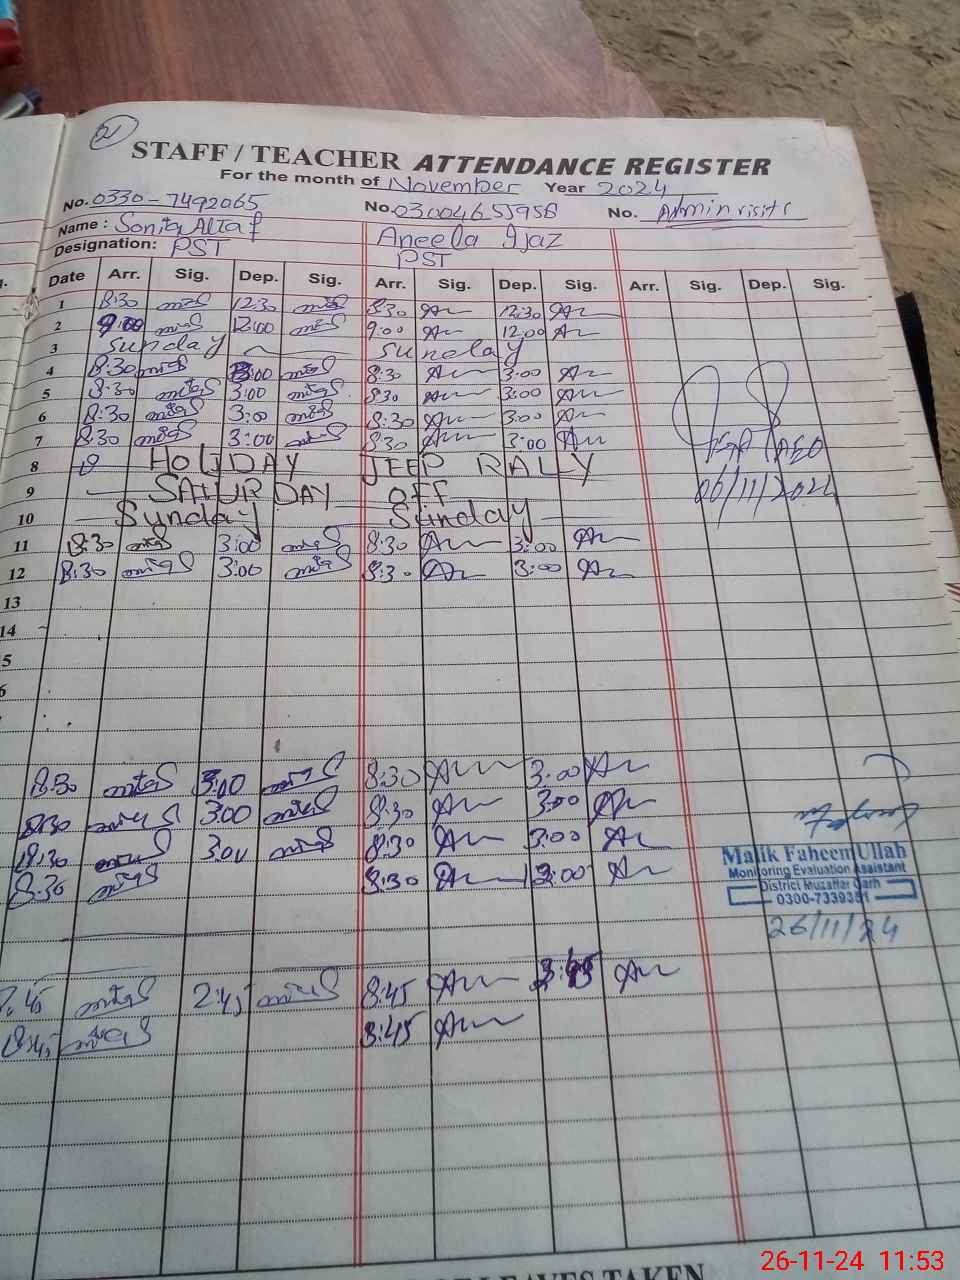 2
STAFF / TEACHER ATTENDANCE REGISTER
For the month of November Year 2024
No. 0330-7492065 No. 03004655956 No. Admin visits
Name : Sonita Altaf Aneela Ijaz
Designation: PST PST
Date Arr. Sig. Dep. Sig. Arr. Sig. Dep. Sig. Arr. Sig. Dep. Sig.
1 8:30 12:30 8:30 12:30
2 9:00 12:00 9:00 12:00
3 Sunday Sunday
4 8:30 3:00 8:30 3:00
5 8:30 3:00 8:30 3:00
6 8:30 3:00 8:30 3:00
7 8:30 3:00 8:30 3:00
8 HOLIDAY JEEP RALLY
9 SATURDAY off 06/11/2024
10 Sunday Sunday
11 8:30 3:00 8:30 3:00
12 8:30 3:00 8:30 3:00
13
14
5
6
8:30 3:00 8:30 3:00
8:30 3:00 8:30 3:00
8:30 3:00 8:30 3:00
8:30 8:30 12:00
Malik Faheem Ullah
Monitoring Evaluation Assistant
District Muzaffar Garh
0300-7339351
26/11/24
2:45 8:45
8:45 8:45
LEAVES TAKEN
26-11-24 11:53